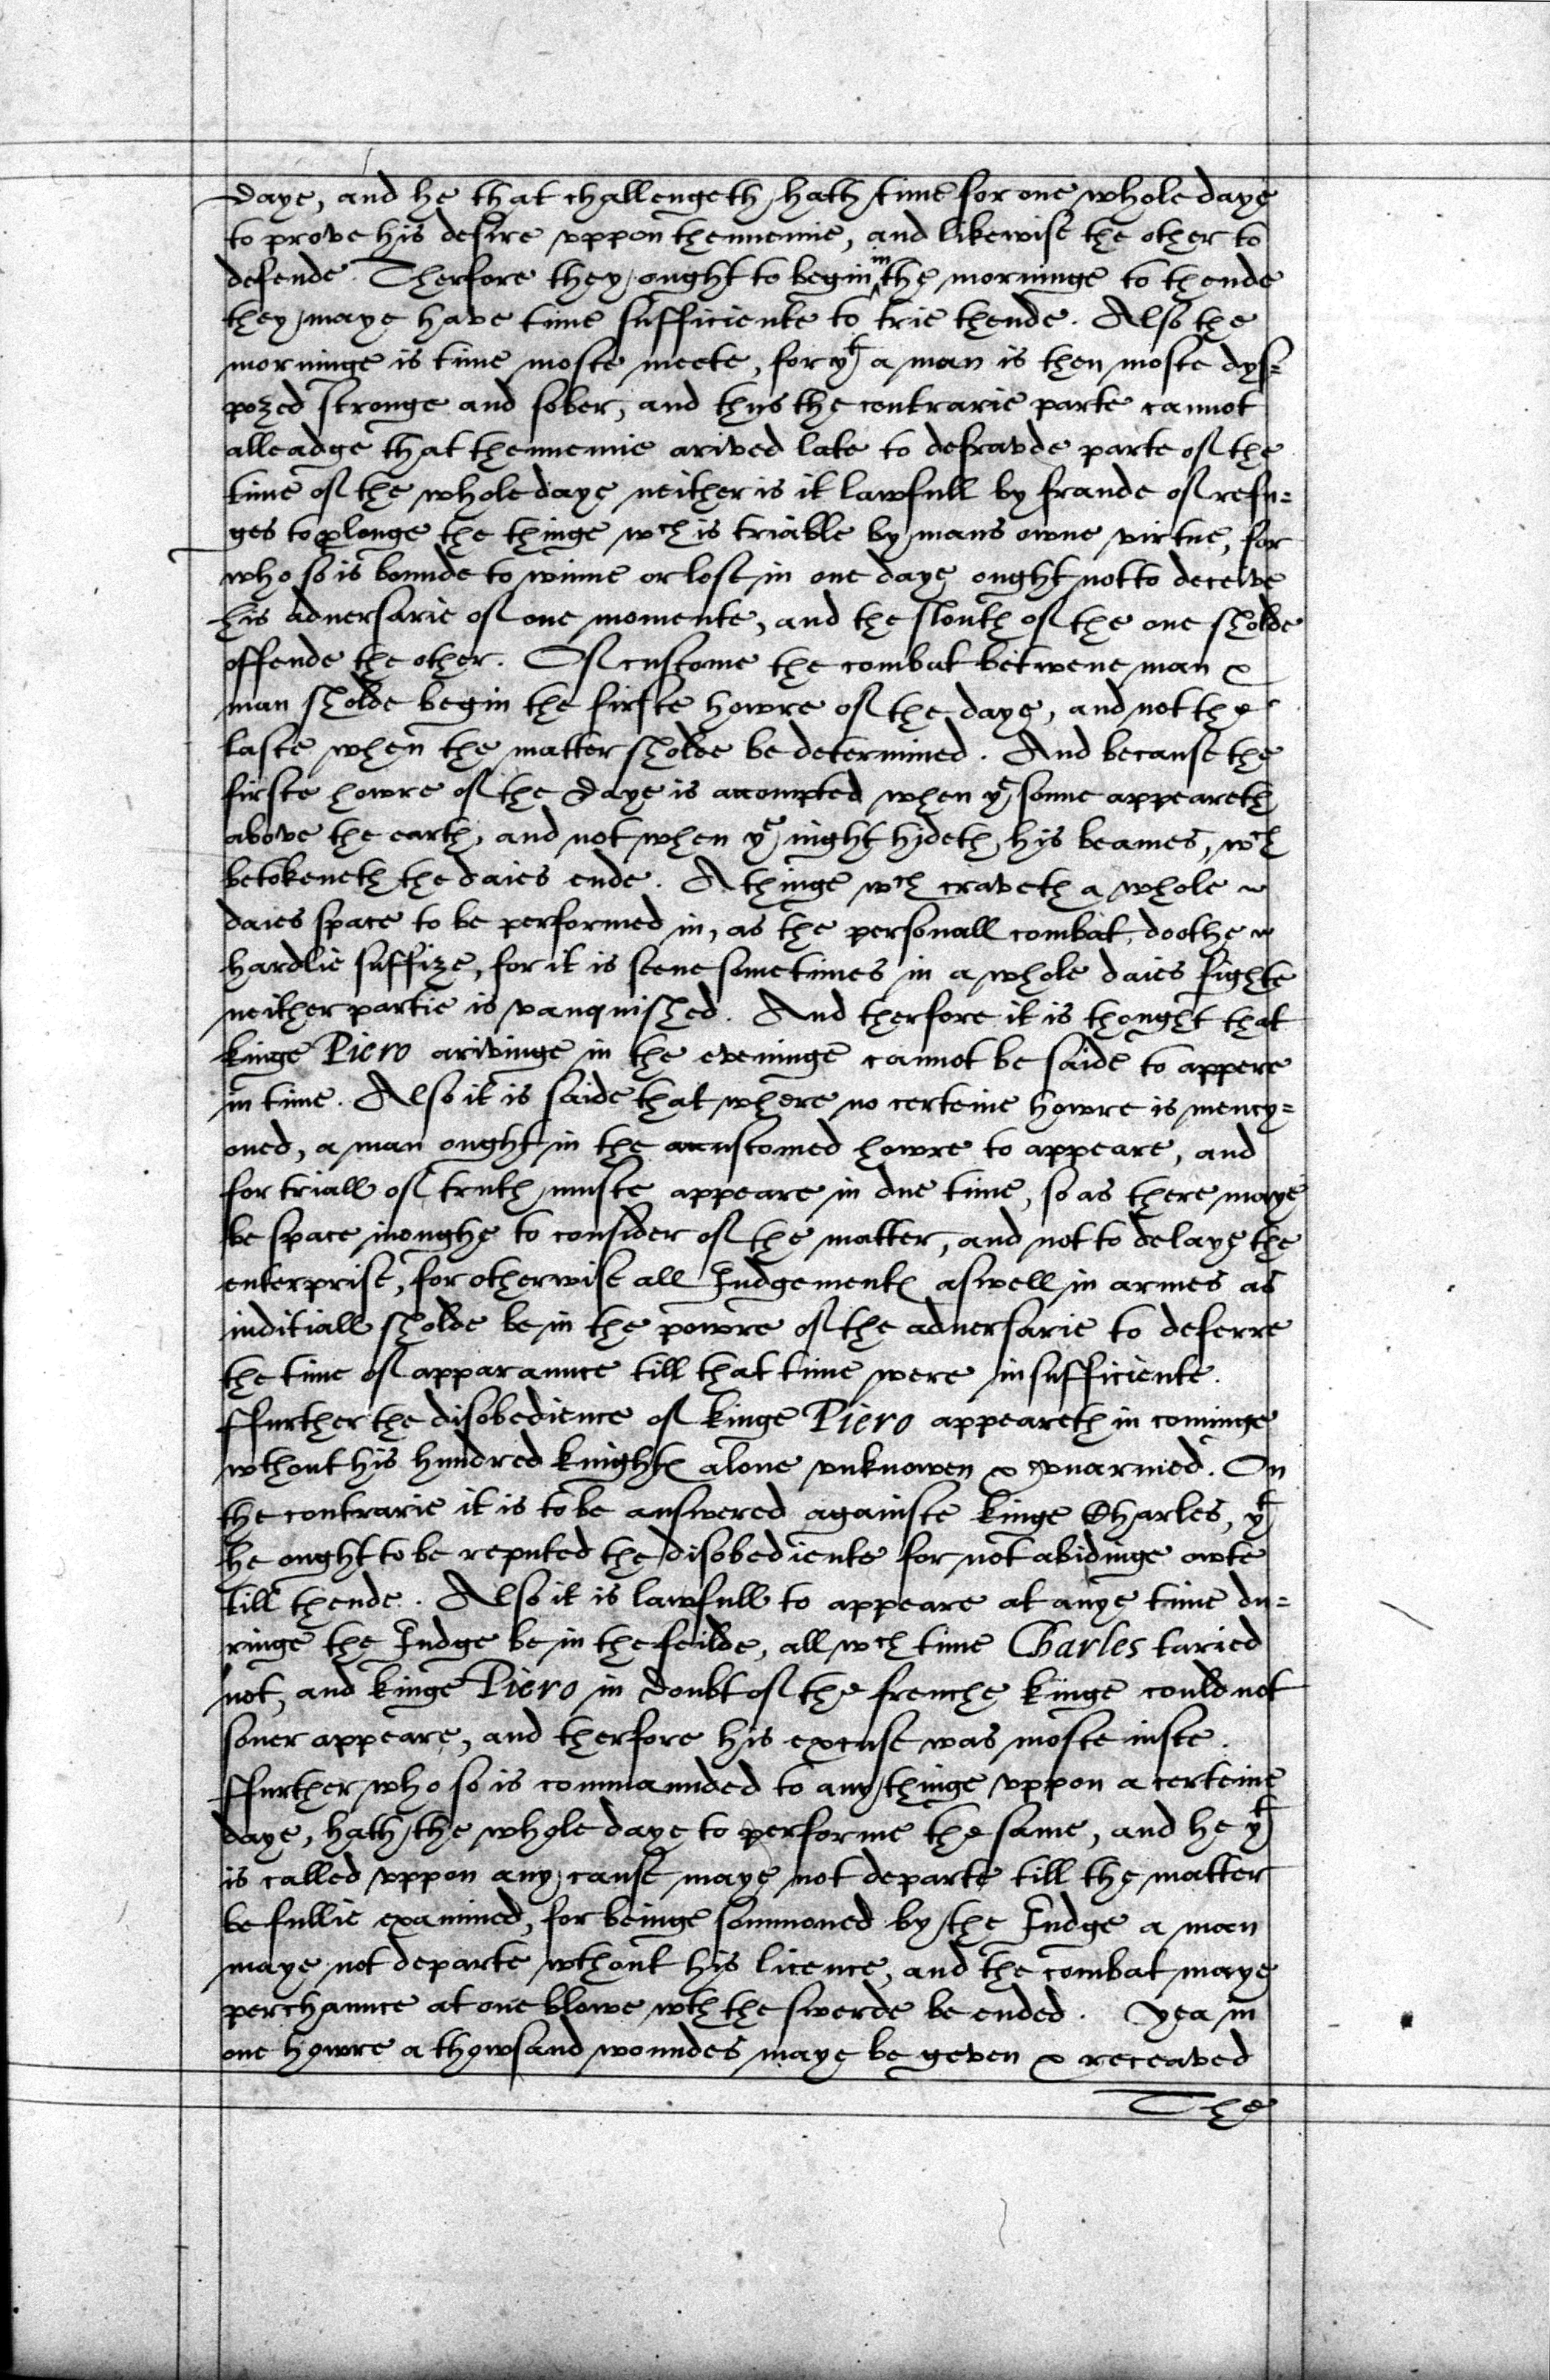 daye, and he that challengeth hath time for one whole daye
to prove his desire vppon thennemie, and likewise the other to
defende. Therfore they ought to begin ^in the morninge to thende
they maye have time sufficiente to trie thende. Also the
morninge is time moste meete, for yt a man is then moste dys=
pozed stronge and sober, and thus the contrarie parte cannot
alleadge that thennemie arived late to defravde parte of the
time of the whole daye neither is it lawfull by fraude of refu=
ges to ꝓlonge the thinge wch is triable by mans owne virtue, for
who so is bounde to winne or lose in one daye ought not to deceive
his aduersarie of one momente, and the slouth of the one sholde
offende the other. Of custome the combat betwene man &
man sholde begin the firste howre of the daye, and not the
laste when the matter sholde be determined. And because the
firste howre of the daye is accompted when ye sonne appeareth
above the earth, and not when ye night hideth his beames, wch
betokeneth the daies ende. A thinge wch craveth a whole
daies space to be performed in, as the personall combat doothe
hardlie suffize, for it is seene sometimes in a whole daies fighte
neither partie is vanquished. And therfore it is thought that
kinge Piero arivinge in the eveninge cannot be saide to appere
in time. Also it is saide that where no certeine howre is mency=
oned, a man ought in the accustomed howre to appeare, and
for triall of truth muste appeare in due time, so as there maye
be space inoughe to consider of the matter, and not to delaye the
enterprise, for otherwise all Iudgementes aswell in armes as
iuditiall sholde be in the powre of the aduersarie to deferre
the time of apparaunce till that time were insufficiente.
ffurther the disobedience of kinge Piero appeareth in cominge
wthout his hundred knightes alone vnknowen & vnarmed. On
the contrarie it is to be answered againste kinge Charles, yt
he ought to be reputed the disobediente for not abidinge owte
till thende. Also it is lawfull to appeare at anye time du=
ringe the Iudge be in the feilde, all wch time Charles taried
not, and kinge Piero in doubt of the frenche kinge could not
soner appeare, and therfore his excuse was moste iuste.
ffurther who so is commaunded to any thinge vppon a certeine
daye, hath the whole daye to performe the same, and he yt
is called vppon any cause maye not departe till the matter
be fullie examined, for beinge sommoned by the Iudge a man
maye not departe wthout his licence, and the combat maye
perchaunce at one blowe wth the swerde be ended. Yea in
one howre a thowsand woundes maye be geven & receaved
The